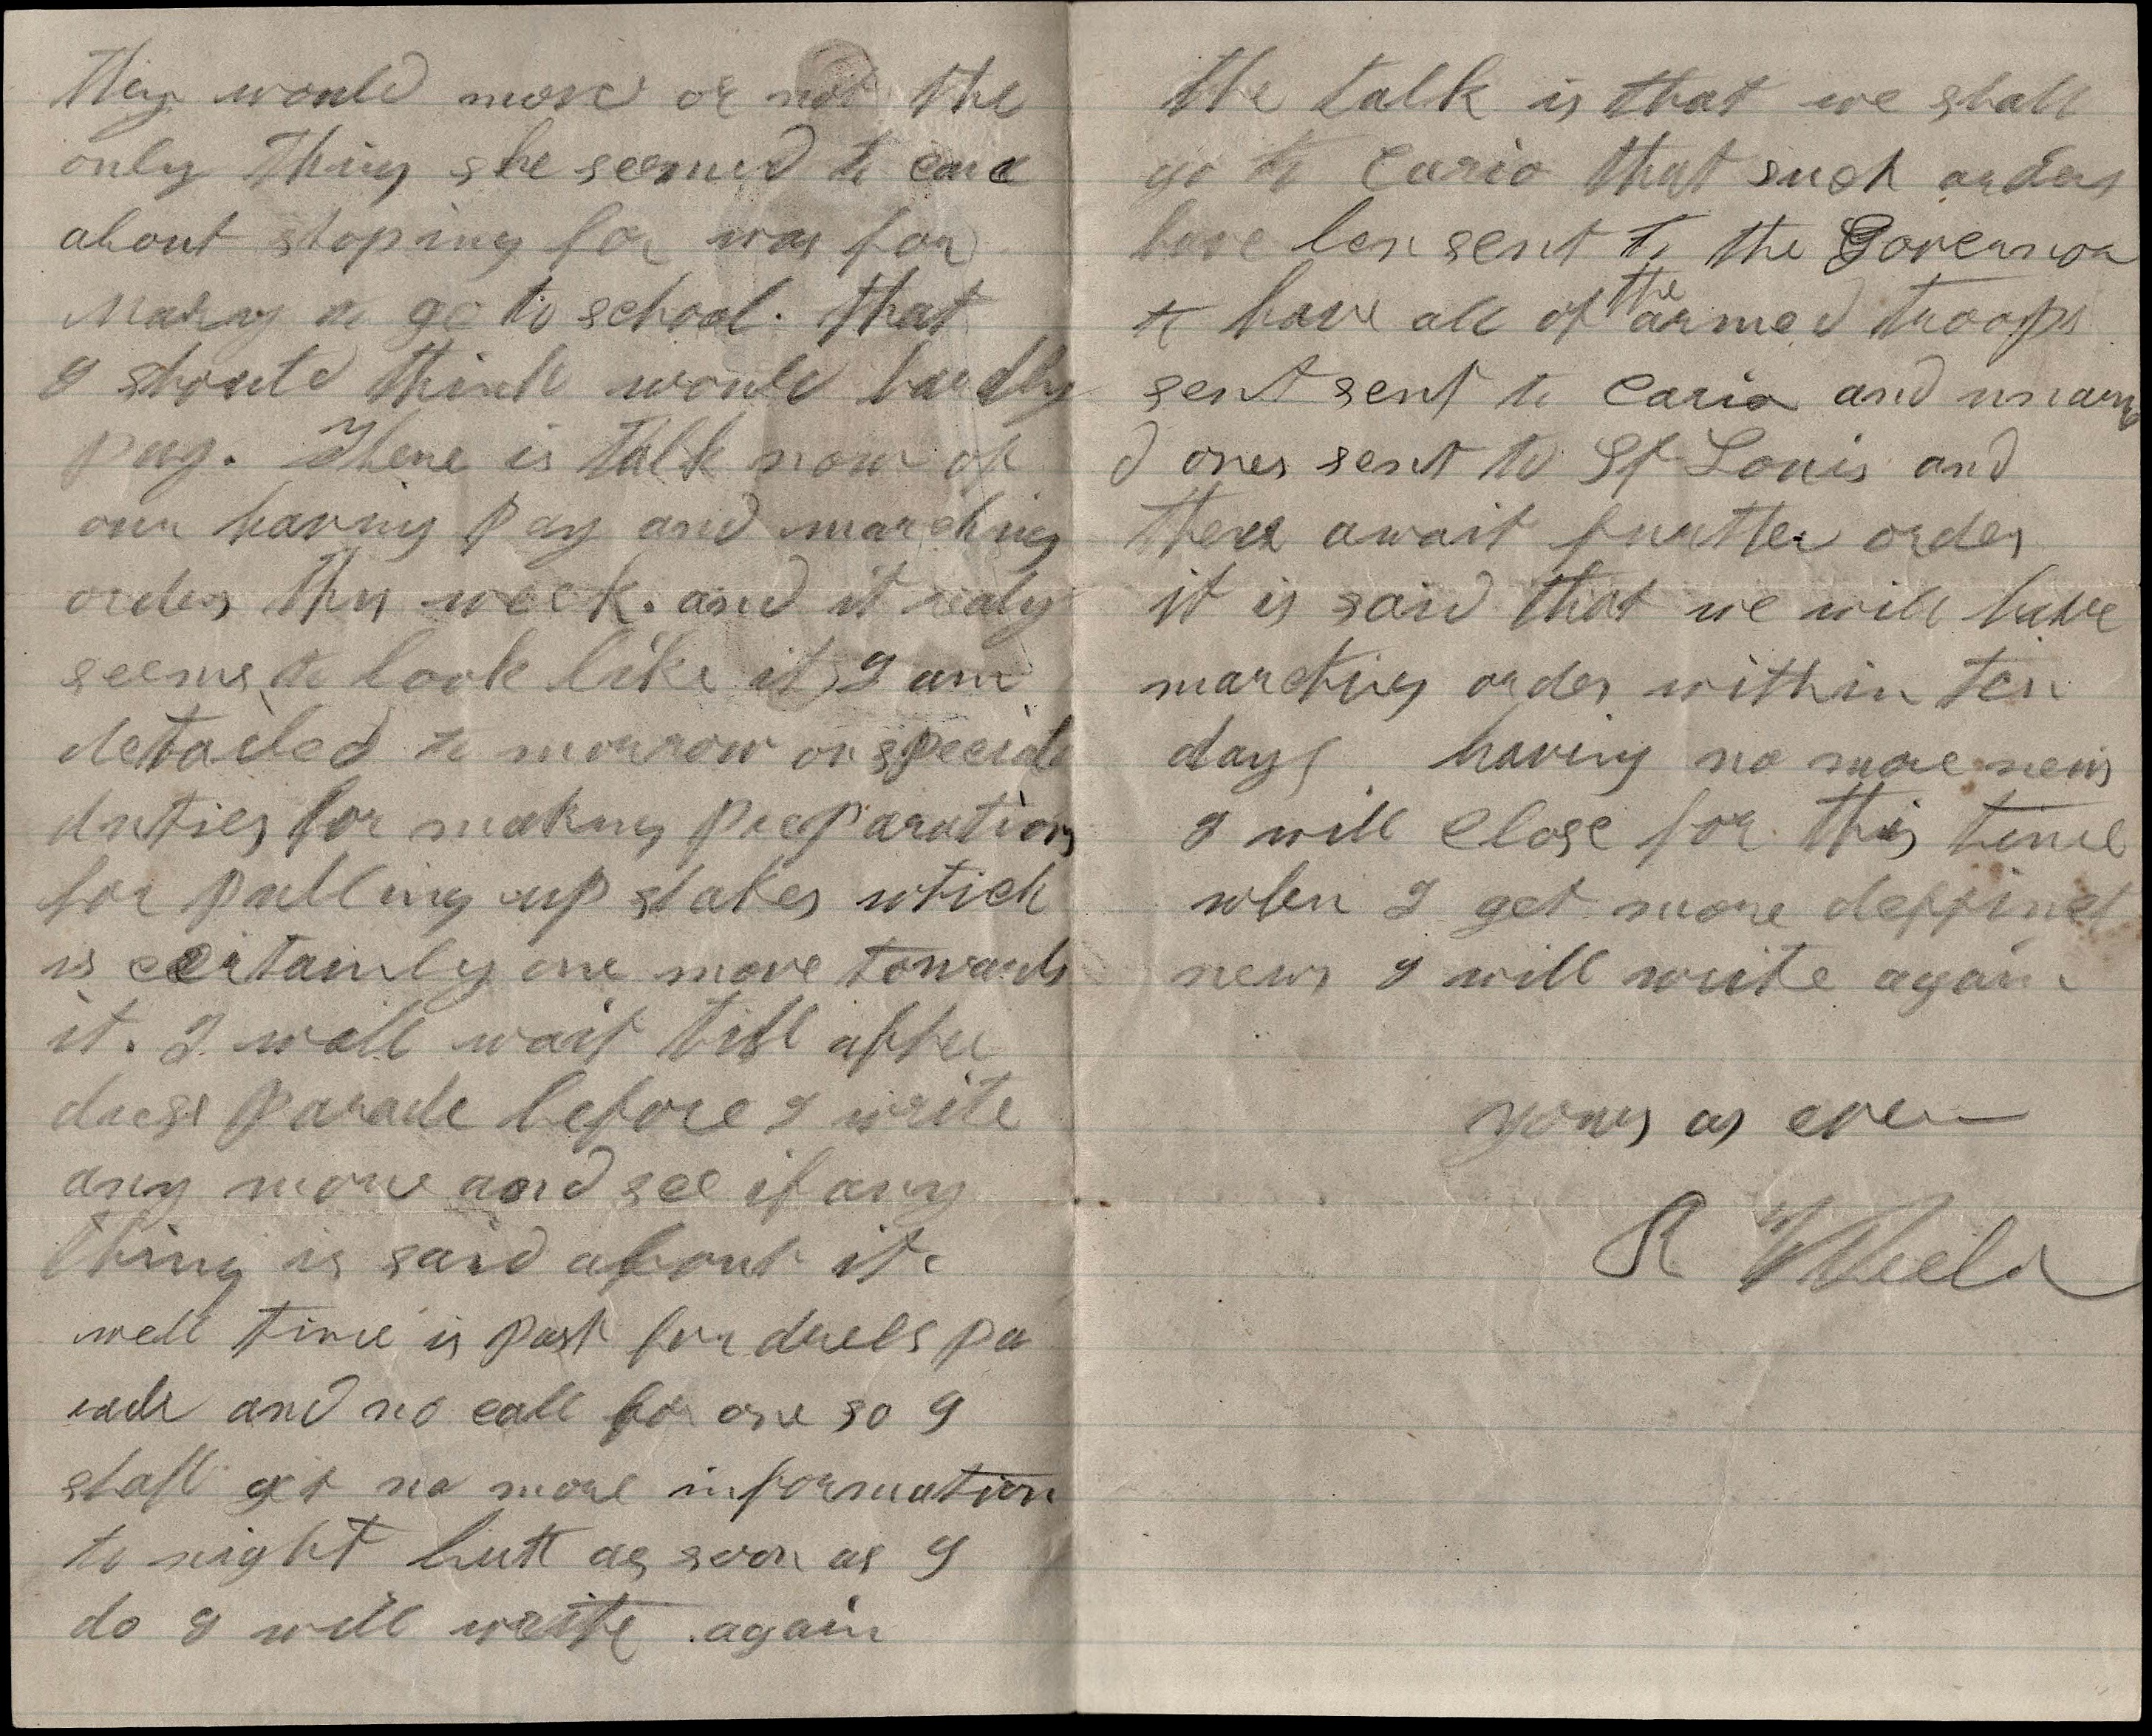 they would move or not the
only thing she seemed to care
about stoping for was for
Mary to go to school. that
I should think would hardly
pay. There is talk now of
our having pay and marching
orders this week. and it realy
seems to look like it, I am
detailed to morrow on special
duties for making preparations
for pulling up stakes which
is certainly one move towards
it. I will wait till after
dress parade before I write
any more and see if any
thing is said about it.
well time is past for dress pa
rade and no call for one so I
shall get no more information
to night butt as soon as I
do I will write again
the talk is that we shall
go to Cario that such orders
have ben sent to the Govenor
to have all of the armed troops
sent sent to Cario and unarm
d ones sent to St Louis and
there await further orders
it is said that we will have
marching orders within ten
days having no more news
I will close for this time
when I get more deffinet
news I will write again
yours as ever
R